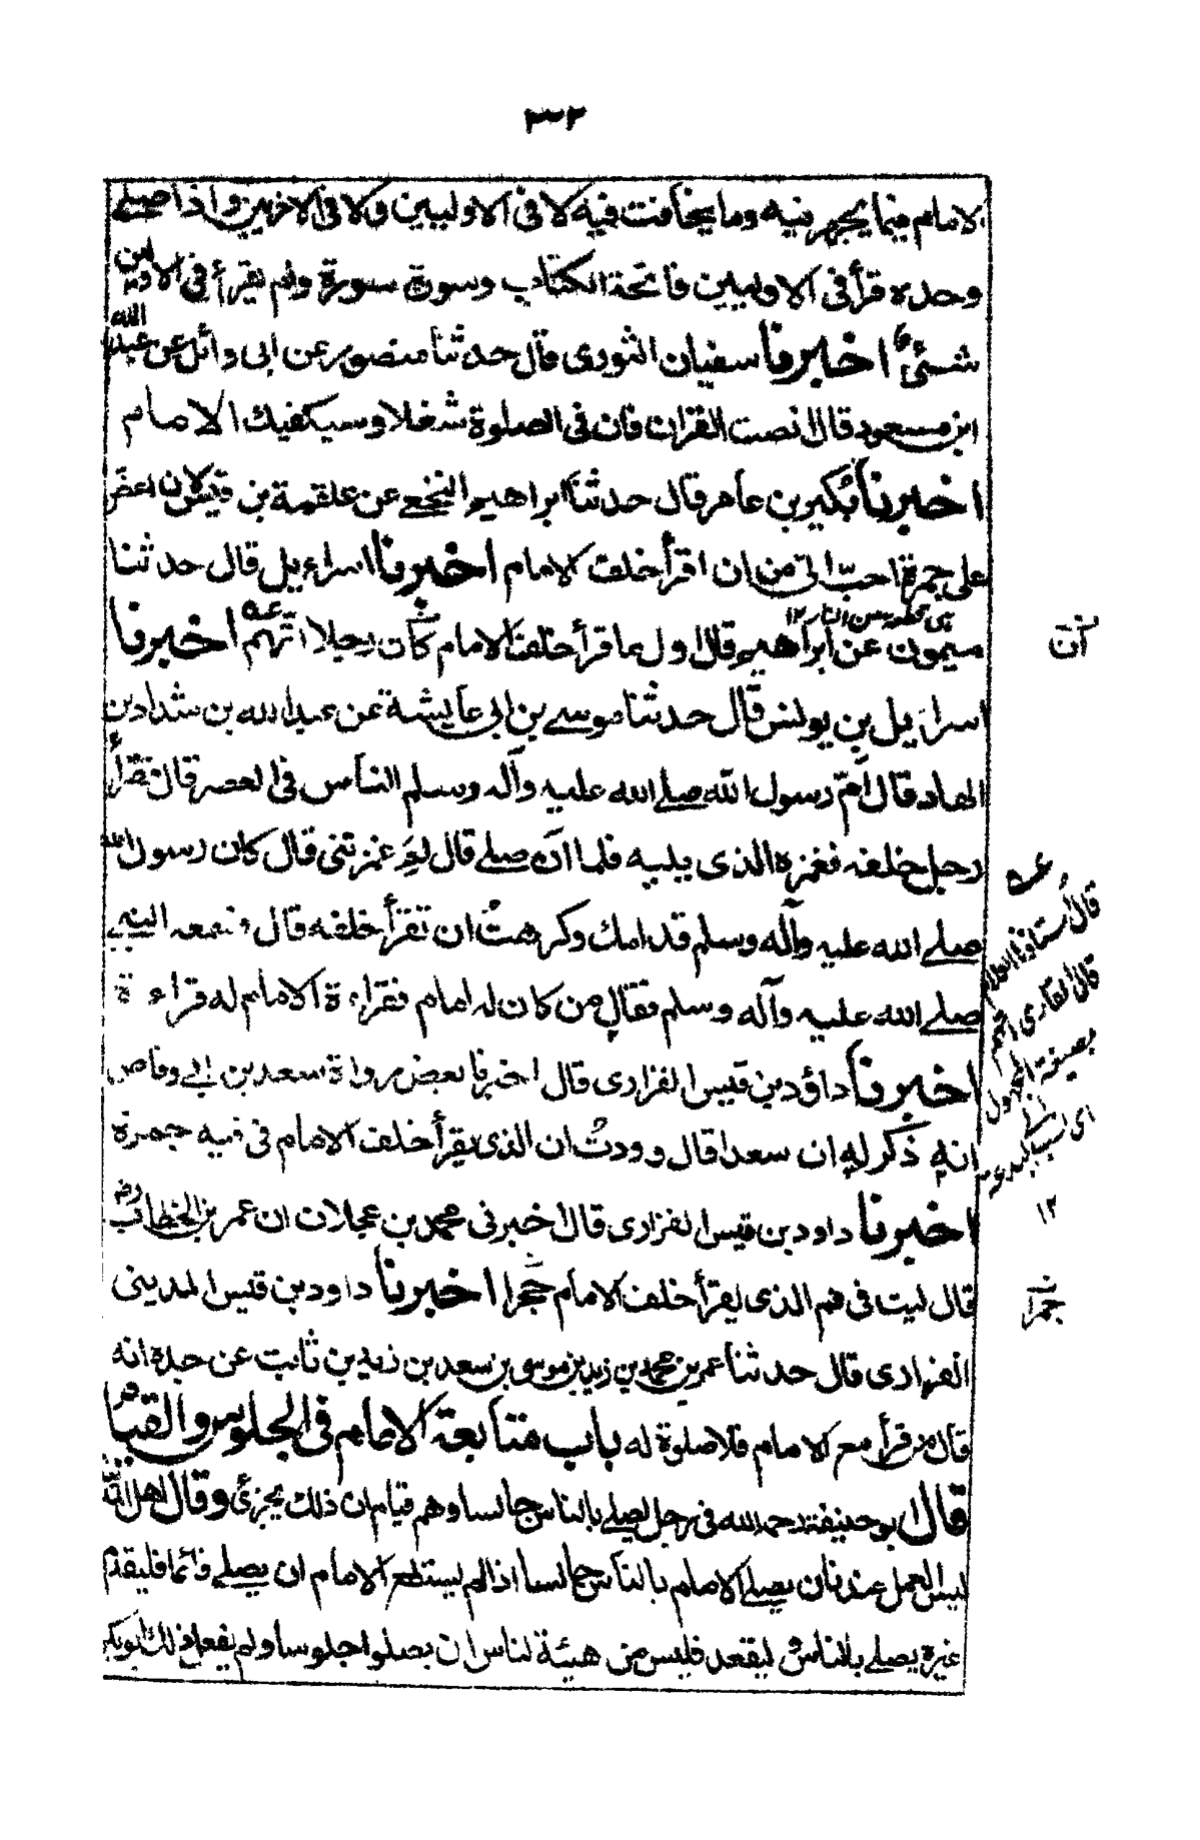 ٣٣٢
الامام فيما يجهر فيه وما يخافت فيه لا فى الاوليين ولا فى الاخريين واذا صلے
وحده قرأ فى الاوليين فاتحة الكتاب وسورة سورة ولم يقرأ فى الاخريين
شيئ اخبرنا سفيان الثورى قال حدثنا منصور عن ابى وائل عن عبد الله
ابن مسعود قال انصت القران فان فى الصلوة شغلا وسيكفيك الامام
اخبرنا بكير بن عامر قال حدثنا ابراهيم النخعى عن علقمة بن قيس لان اعض
على جمرة احبّ الى من ان اقرأ خلف الامام اخبرنا اسراءيل قال حدثنا
منصور عن ابراهيم قال اول ما قرأ خلف الامام كان رجلا اتهم اخبرنا
آن
اسرائيل بن يونس قال حدثنا موسے بن ابى عايشة عن عبد الله بن شداد بن
الهاد قال امّ رسول الله صلے الله عليه وآله وسلم الناس فى العصر قال فقرأ
رجل خلفه فغمزه الذى يليه فلما ان صلے قال لم غمزتنى قال كان رسول الله
صلے الله عليه وآله وسلم قدامك وكرهت ان تقرأ خلفه قال فسمعه النبى
صلے الله عليه وآله وسلم فقال من كان له امام فقراءة الامام له قراءة
اخبرنا داؤد بن قيس الفزارى قال اخبرنا بعض رواة سعد بن ابى وقاص
انه ذكر له ان سعدا قال وددتُ ان الذى يقرأ خلف الامام فى فيه جمرة
اخبرنا داود بن قيس الفزارى قال اخبرنى محمد بن عجلان ان عمر بن الخطاب رض
قال ليت فى فم الذى يقرأ خلف الامام حجرا اخبرنا داود بن قيس المدينى
جمرا
الفزارى قال حدثنا عمر بن محمد بن زيد بن موسى بن سعد بن زيد بن ثابت عن جده انه
قال من قرأ مع الامام فلا صلوة له باب متابعة الامام فى الجلوس والقيام
قال ابو حنيفة رحمه الله فى رجل يصلے بالناس جالسا وهم قيام ان ذلك يجزئ وقال اهل المدينة
ليس العمل عندنا ان يصلے الامام بالناس جالسا اذا لم يستطع الامام ان يصلے قائما فليقدم
غيره يصلے بالناس و ليقعد فليس من هيئة لناس ان يصلوا جلوسا ولم يفعل ذلك ابو بكر
عه
قال أستاذنا العلام
قال القارى اتهم
بصيغة المجهول
اى نسب الى بدعة
١٢